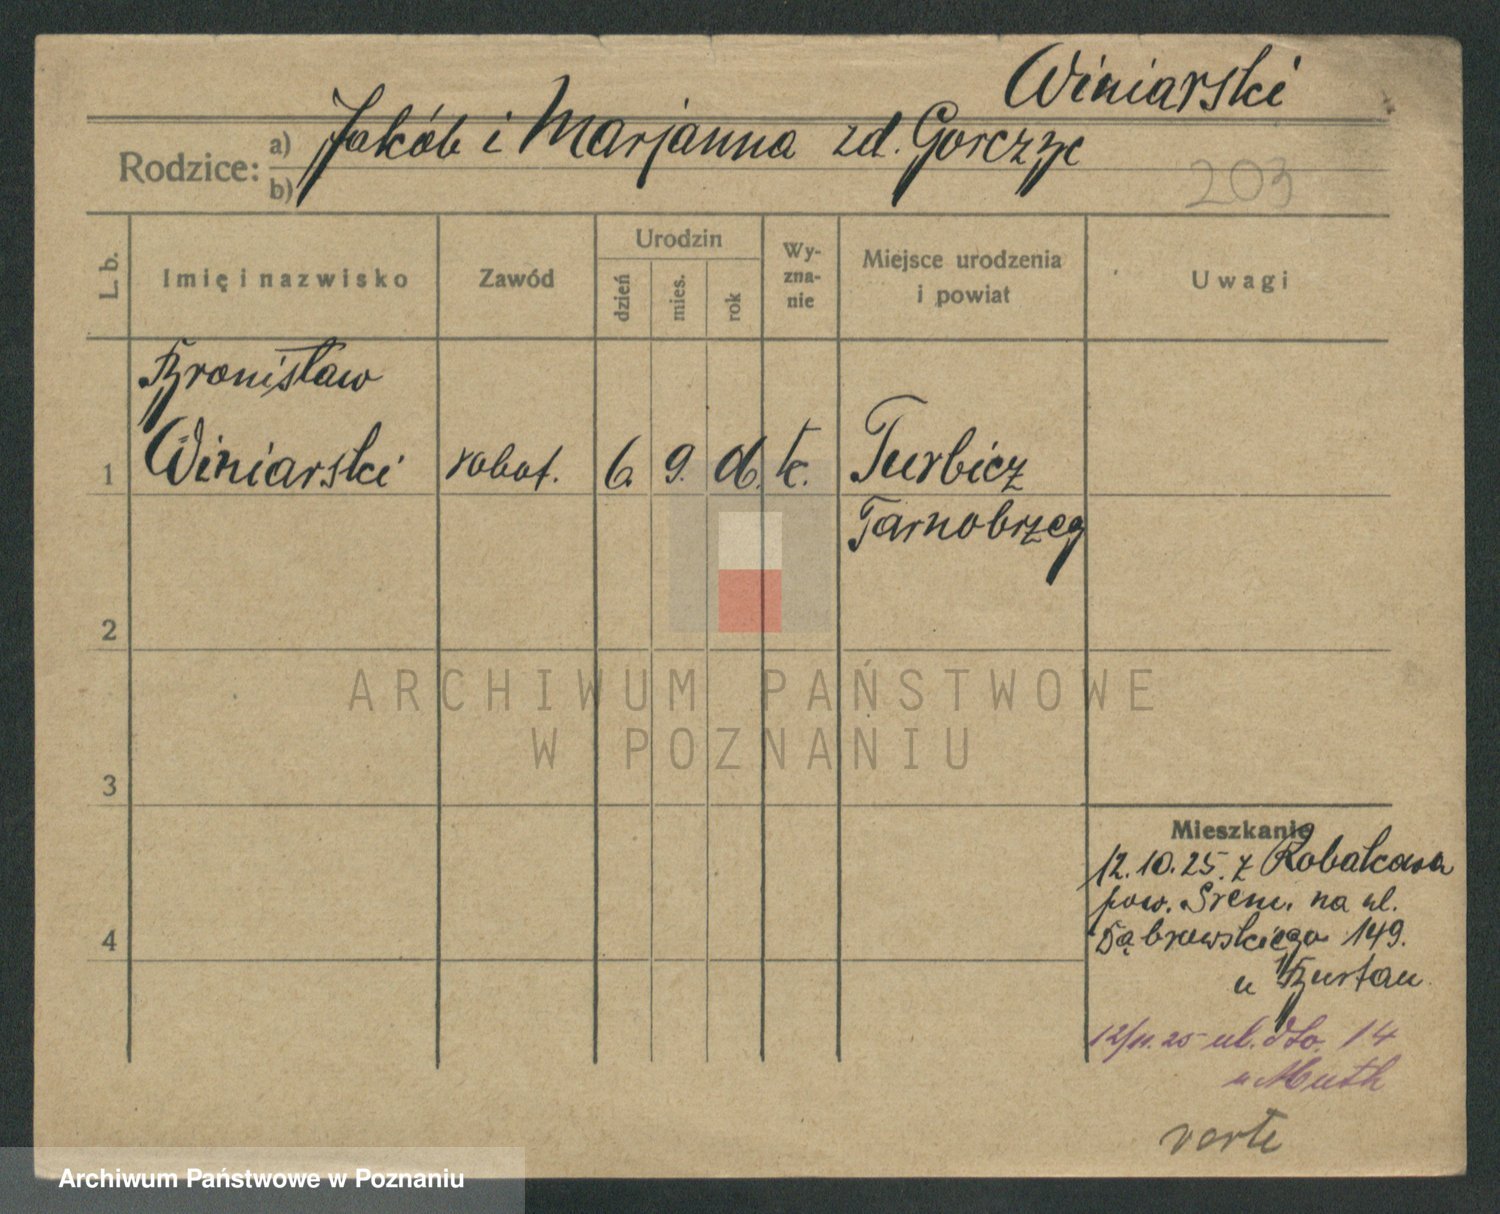 Winiarski
Rodzice: a) Jakób i Marjanna zd. Gorczyc
b)
203
L. b.
Imię i nazwisko
Zawód
Urodzin
dzień
mies.
rok
Wy-
zna-
nie
Miejsce urodzenia
i powiat
Uwagi
Bronisław
1 Winiarski robot. 6. 9. k. Turbicz
Tarnobrzeg
2
ARCHIWUM PAŃSTWOWE
W POZNANIU
3
Mieszkanie
12.10.25. z
pow. Srem. na ul.
4 Dąbrowskiego 149.
u Burtau
12/11.25 ul. dto. 14
u Muth
verte
Archiwum Państwowe w Poznaniu